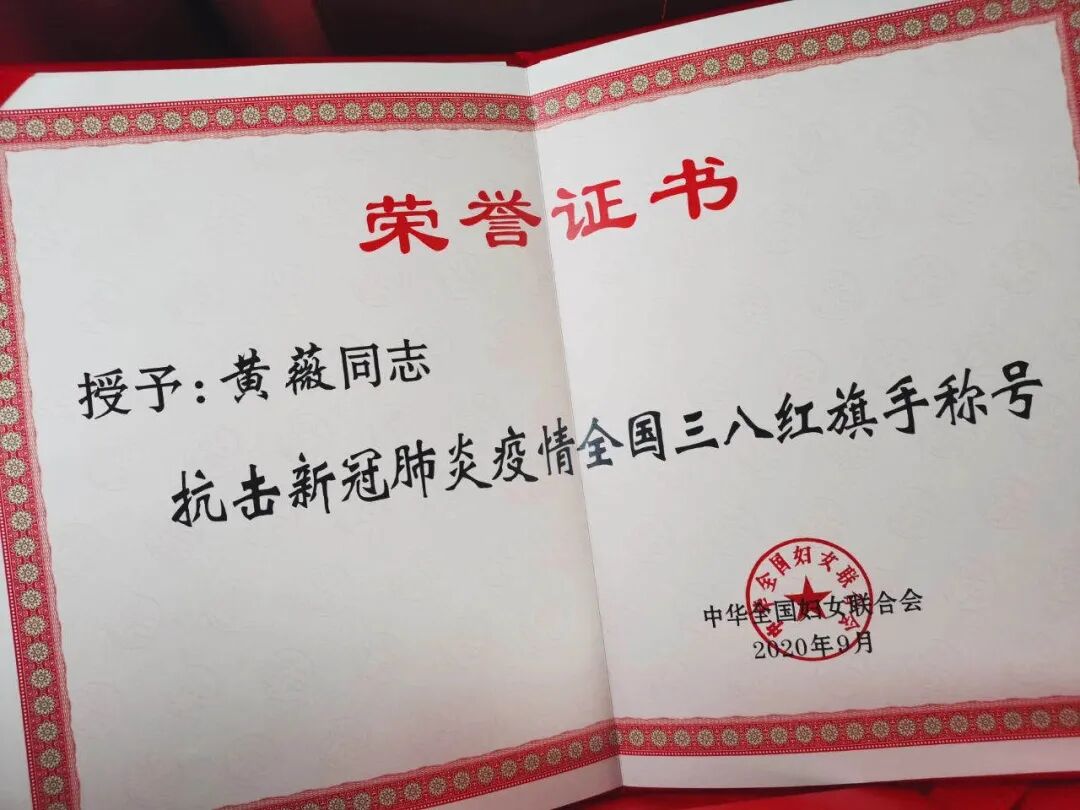 荣誉证书
授予：黄薇同志
抗击新冠肺炎疫情全国三八红旗手称号
中华全国妇女联合会
中华全国妇女联合会
2020年9月